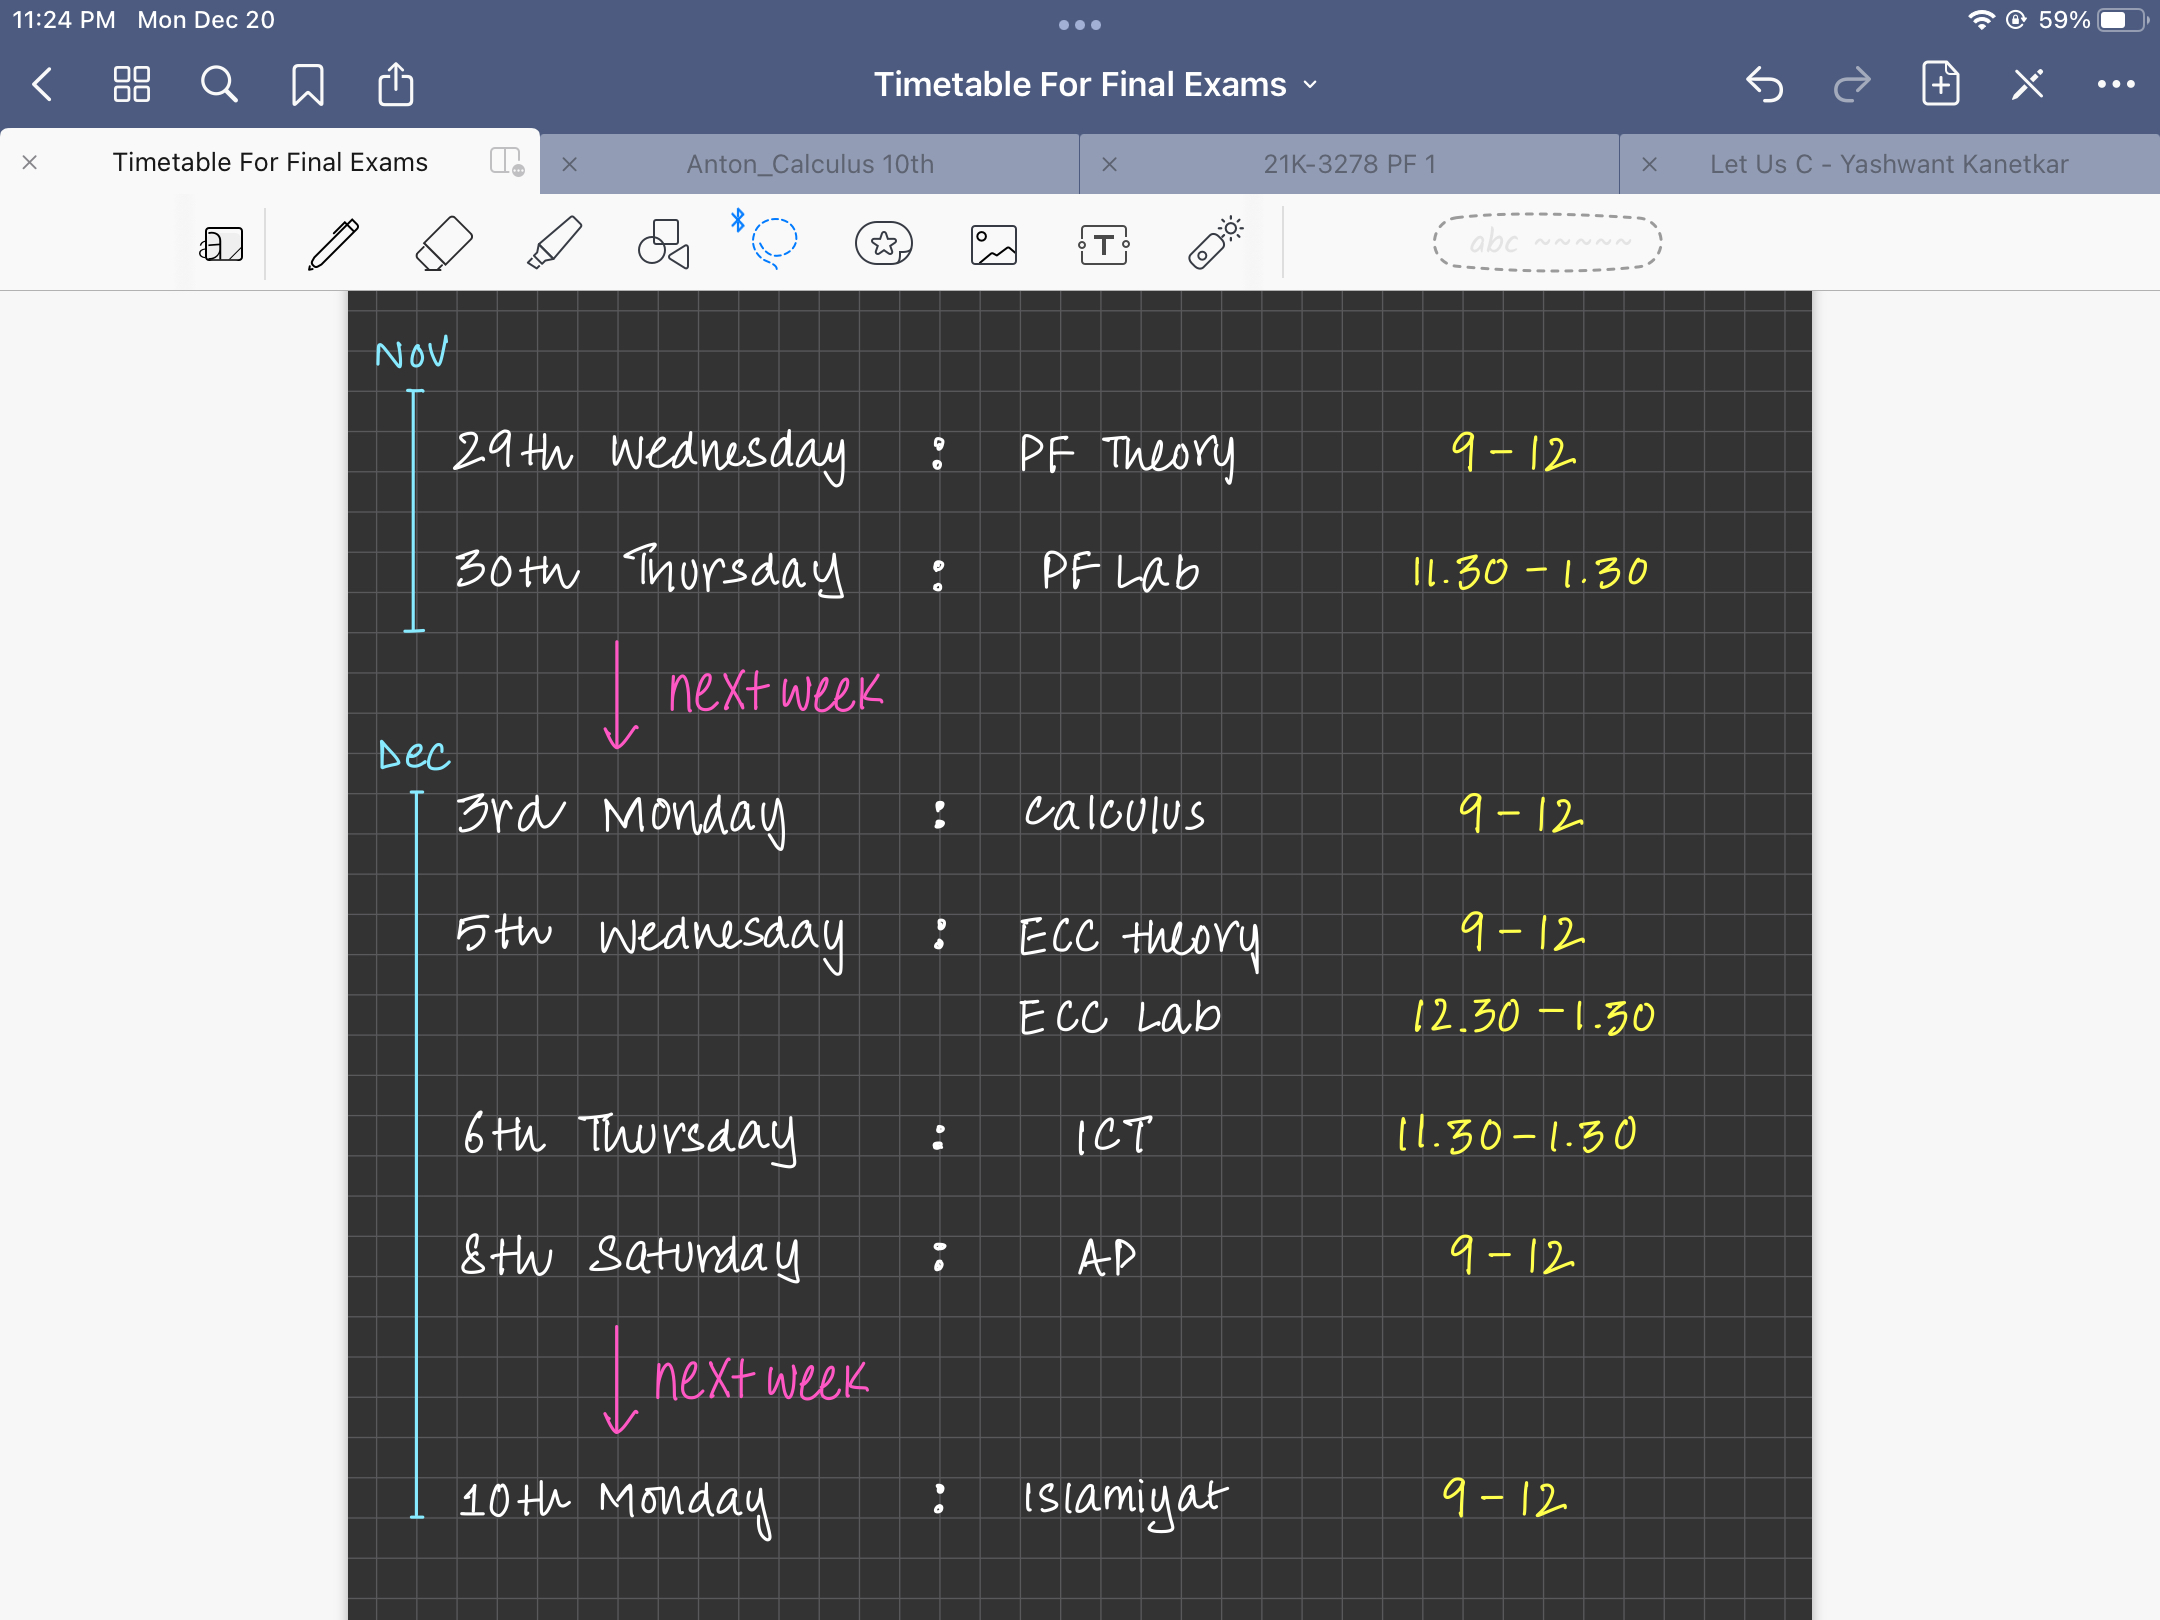 11:24 PM Mon Dec 20 59%
Timetable For Final Exams
Timetable For Final Exams Anton_Calculus 10th 21K-3278 PF 1 Let Us C - Yashwant Kanetkar
a T abc ~~~~~
Nov
29th Wednesday : PF Theory 9-12
30th Thursday : PF Lab 11.30-1.30
next week
Dec
3rd Monday : Calculus 9-12
5th Wednesday : ECC theory 9-12
ECC Lab 12.30-1.30
6th Thursday : ICT 11.30-1.30
8th Saturday : AP 9-12
next week
10th Monday : Islamiyat 9-12